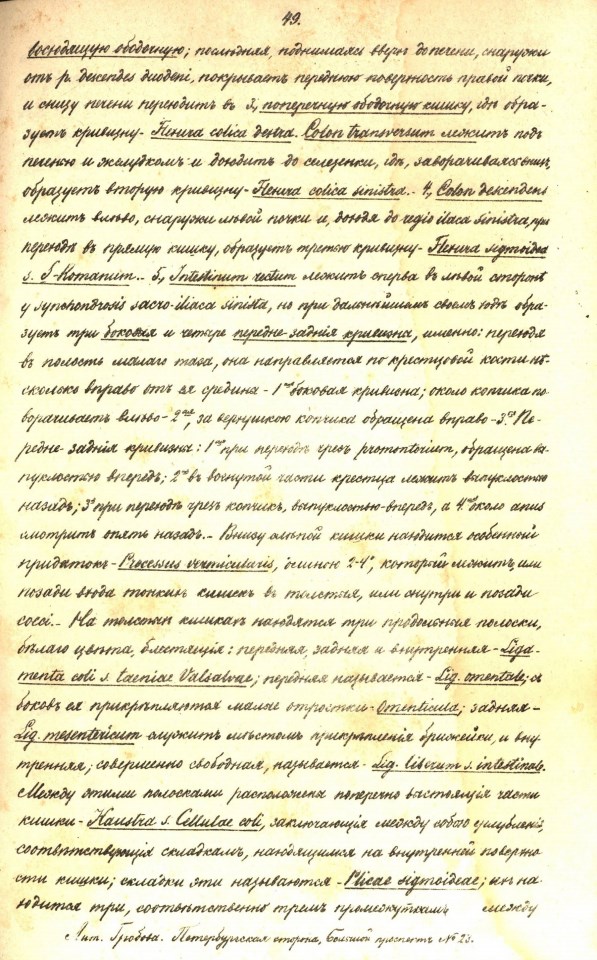 49.
восходящую ободочную; последняя, поднимаясь вверхъ до печени, снаружи
отъ p. descendes duodeni, покрываетъ переднюю поверхность правой почки,
и снизу печени переходитъ въ 3, поперечную ободочную кишку, гдѣ обра-
зуетъ кривизну - Flexura colica dextra. Colon transversum лежитъ подъ
печенью и желудкомъ и доходитъ до селезенки, гдѣ, заворачиваясь внизъ,
образуетъ вторую кривизну - Flexura colica sinistra. - 4, Colon descendens
лежитъ влѣво, снаружи лѣвой почки и, дойдя до regio iliaca sinistra, при
переходѣ въ прямую кишку, образуетъ третью кривизну - Flexura sigmoidea
s. S-Romanum. - 5, Intestinum rectum лежитъ сперва въ лѣвой сторонѣ
у synchondrosis sacro-iliaca sinista, но при дальнѣйшемъ своемъ ходѣ обра-
зуетъ три боковыя и четыре передне-заднія кривизны, именно: переходя
въ полость малаго таза, она направляется по крестцовой кости нѣ-
сколько вправо отъ ея средины - 1ая боковая кривизна; около копчика по-
ворачиваетъ влѣво - 2ая, за верхушкою копчика обращена вправо - 3ья Пе-
редне-заднія кривизны: 1ая при переходѣ чрезъ promontorium, обращена вы-
пуклостью впередъ; 2ая въ вогнутой части крестца лежитъ выпуклостью
назадъ; 3я при переходѣ чрезъ копчикъ, выпуклостью - впередъ, а 4ая около anus
смотритъ опять назадъ. - Внизу слѣпой кишки находится особенный
придатокъ - Processus vermicularis, длиною 2-4", который лежитъ, или
позади входа тонкихъ кишекъ въ толстыя, или снутри и позади
coeci. - На толстыхъ кишкахъ находятся три продольныя полоски,
бѣлаго цвѣта, блестящія: передняя, задняя и внутренняя - Liga-
menta coli s. taeniae Valsalvae; передняя называется - Lig. omentale; съ
боковъ ея прикрѣпляются малые отростки - Omenticula; задняя -
Lig. mesentericum служитъ мѣстомъ прикрѣпленія брыжейки, и вну-
тренняя; совершенно свободная, называется - Lig. liberum s. intestinale.
Между этими полосками расположены поперечно выстоящія части
кишки - Haustra s. Cellulae coli, заключающія между собою углубленія,
соотвѣтствующія складкамъ, находящимся на внутренней поверхно-
сти кишки; складки эти называются - Plicae sigmoideae; ихъ на-
ходится три, соотвѣтственно тремъ промежуткамъ между
Лит. Гробова. Петербургская сторона, Большой проспектъ № 23.